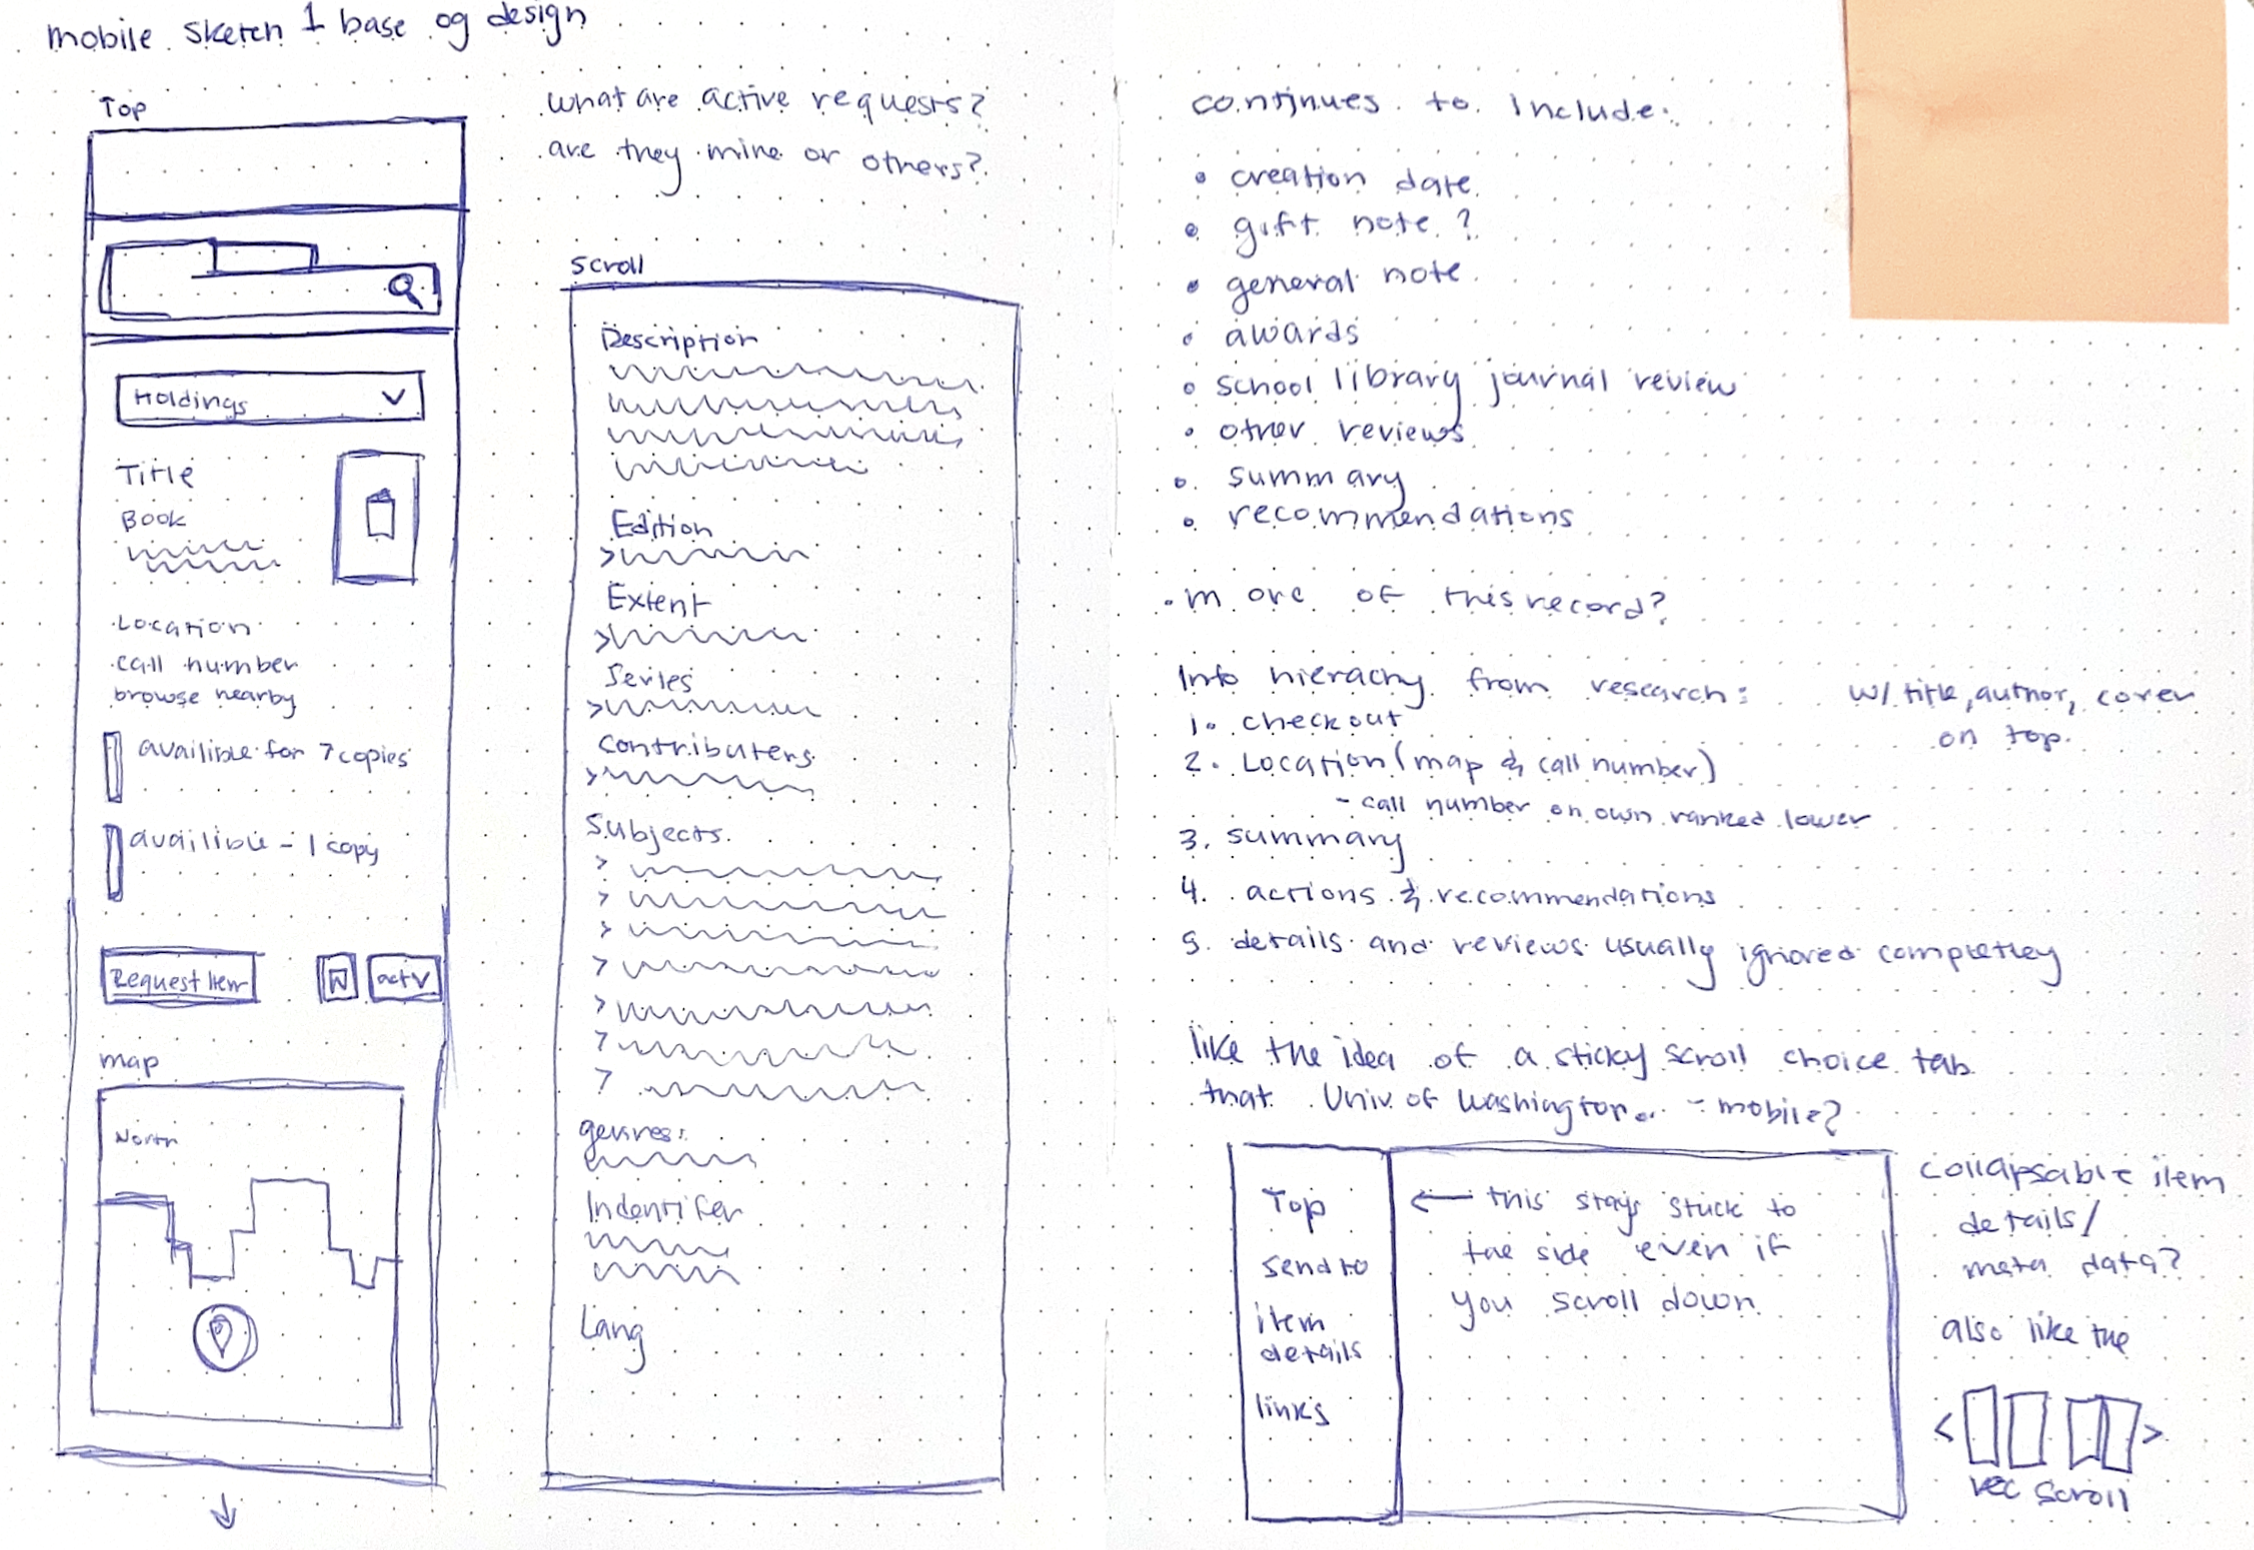 mobile sketch 1 base og design
Top
Holdings
Title
Book
Location
call number
browse nearby
availible for 7 copies
availible - 1 copy
Request Item
act
map
North
what are active requests?
are they mine or others?
scroll
Description
Edition
Extent
Series
contributers
Subjects
genres:
Indentifer
Lang
continues to include:
• creation date
• gift note?
• general note
• awards
• school library journal review
• other reviews
• summary
• recommendations
• more of this record?
Info hierachy from research:
w/ title, author, cover
on top.
1. checkout
2. Location (map & call number)
- call number on own ranked lower
3. summary
4. actions & recommendations
5. details and reviews usually ignored completley
like the idea of a sticky scroll choice tab
that Univ. of Washington. - mobile?
Top
send to
item
details
links
← this stays stuck to
the side even if
you scroll down
collapsable item
details/
meta data?
also like the
< >
rec scroll